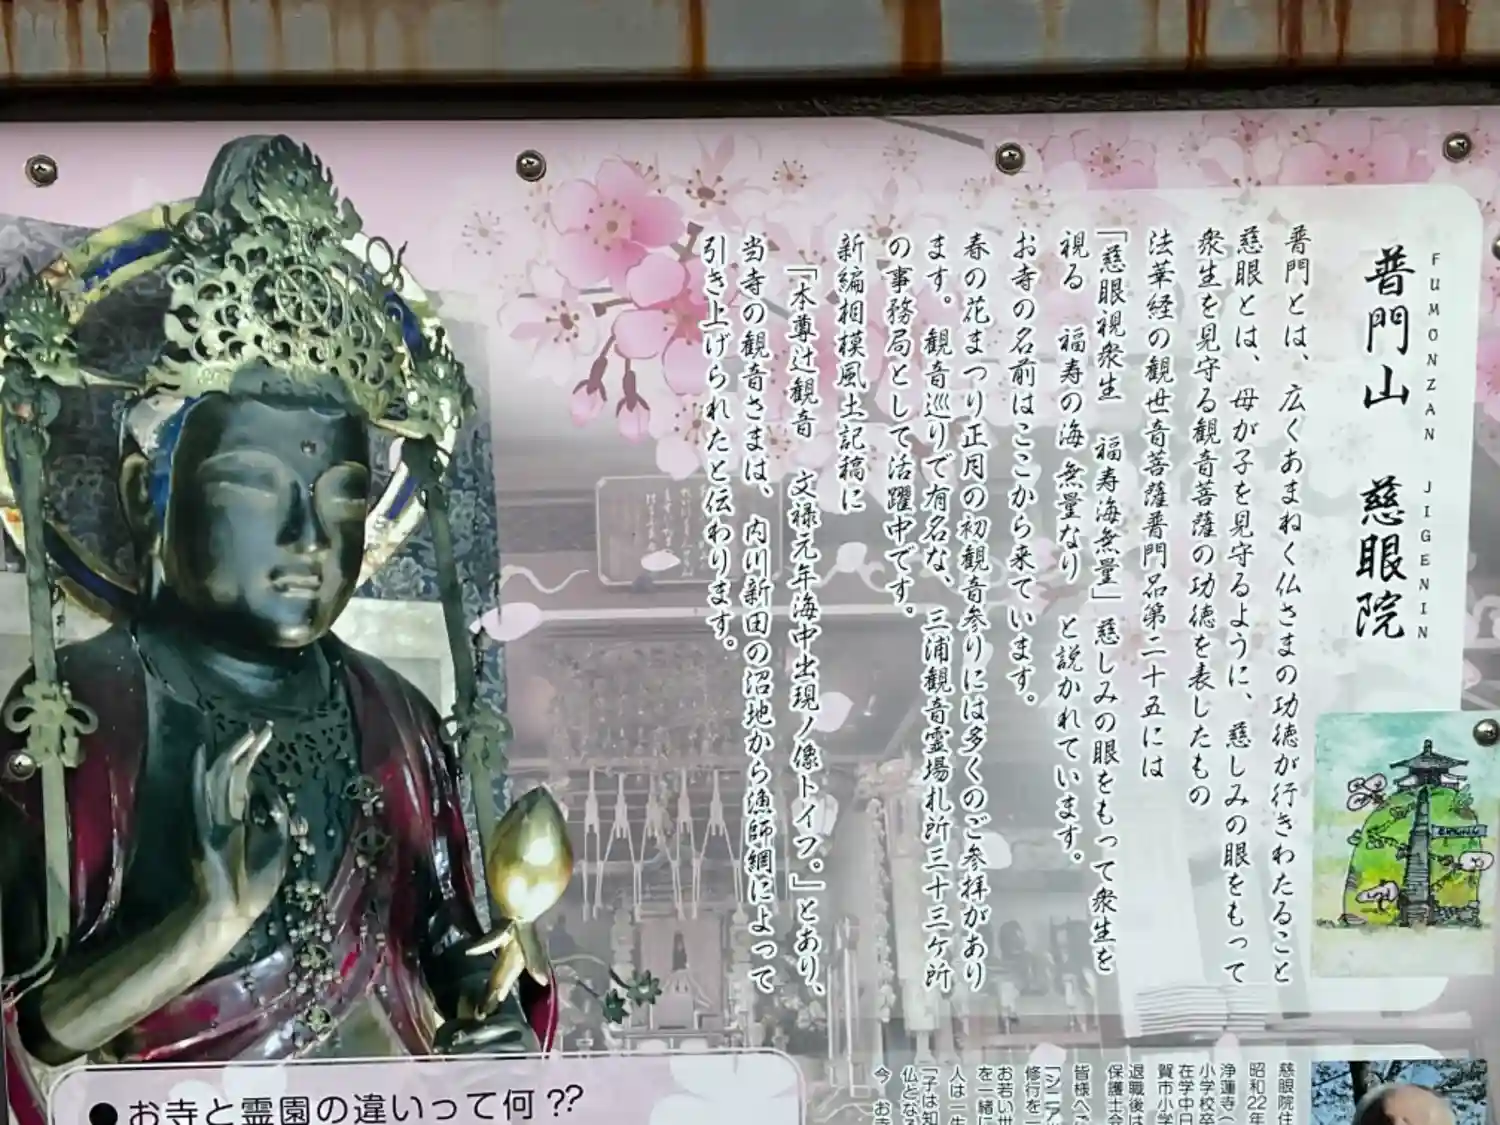 普門山 慈眼院
FUMONZAN JIGENIN
普門とは、広くあまねく仏さまの功徳が行きわたること
慈眼とは、母が子を見守るように、慈しみの眼をもって
衆生を見守る観音菩薩の功徳を表したもの
法華経の観世音菩薩普門品第二十五には
「慈眼視衆生 福寿海無量」慈しみの眼をもって衆生を
視る 福寿の海 無量なり と説かれています。
お寺の名前はここから来ています。
春の花まつり正月の初観音参りには多くのご参拝があり
ます。観音巡りで有名な、三浦観音霊場札所三十三ケ所
の事務局として活躍中です。
新編相模風土記稿に
「本尊辻観音 文禄元年海中出現ノ像トイフ。」とあり、
当寺の観音さまは、内川新田の沼地から漁師網によって
引き上げられたと伝わります。
慈眼院住
昭和22年
浄蓮寺(
小学校卒
在学中日
賀市小学
退職後は
保護士会
皆様へご
「シニア
修行を一
お若い世
を一緒に
人は一生
「子は知
仏となる
今、お寺
●お寺と霊園の違いって何??